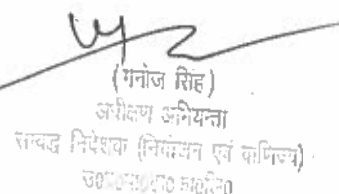 (मनोज सिंह)
अधीक्षण अभियन्ता
सम्बद्ध निदेशक (नियोजन एवं वाणिज्य)